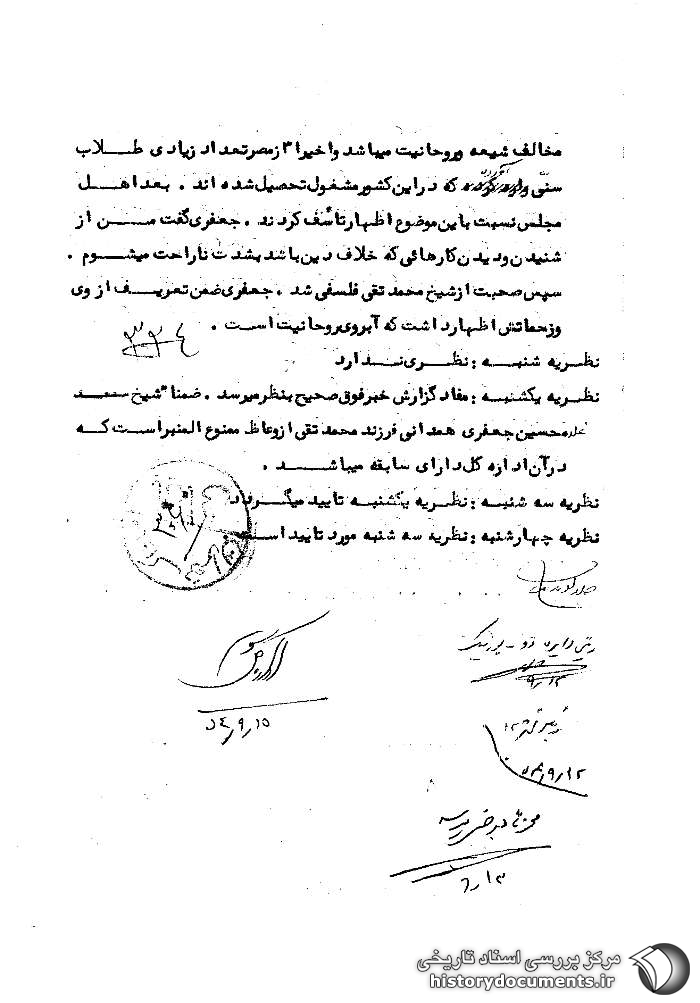 مخالف شیعه و روحانیت میباشد و اخیرا" از مصر تعداد زیادی طلاب
سنی که در این کشور مشغول تحصیل شده اند . بعد اهل
مجلس نسبت باین موضوع اظهار تاسف کردند . جعفری گفت من از
شنیدن و دیدن کارهائی که خلاف دین باشد بشدت ناراحت میشوم .
سپس صحبت از شیخ محمد تقی فلسفی شد . جعفری ضمن تعریف از وی
و زحماتش اظهار داشت که آبروی روحانیت است .
۳۳۴
نظریه شنبه : نظری ندارد
نظریه یکشنبه : مفاد گزارش خبر فوق صحیح بنظر میرسد . ضمنا" شیخ
محسین جعفری همدانی فرزند محمد تقی از وعاظ ممنوع المنبر است که
در آن اداره کل دارای سابقه میباشد .
نظریه سه شنبه : نظریه یکشنبه تایید میگردد
نظریه چهارشنبه : نظریه سه شنبه مورد تایید است
۹/۱۲
۵۴/۹/۱۵
۵۴/۹/۱۲
مرکز بررسی اسناد تاریخی
historydocuments.ir